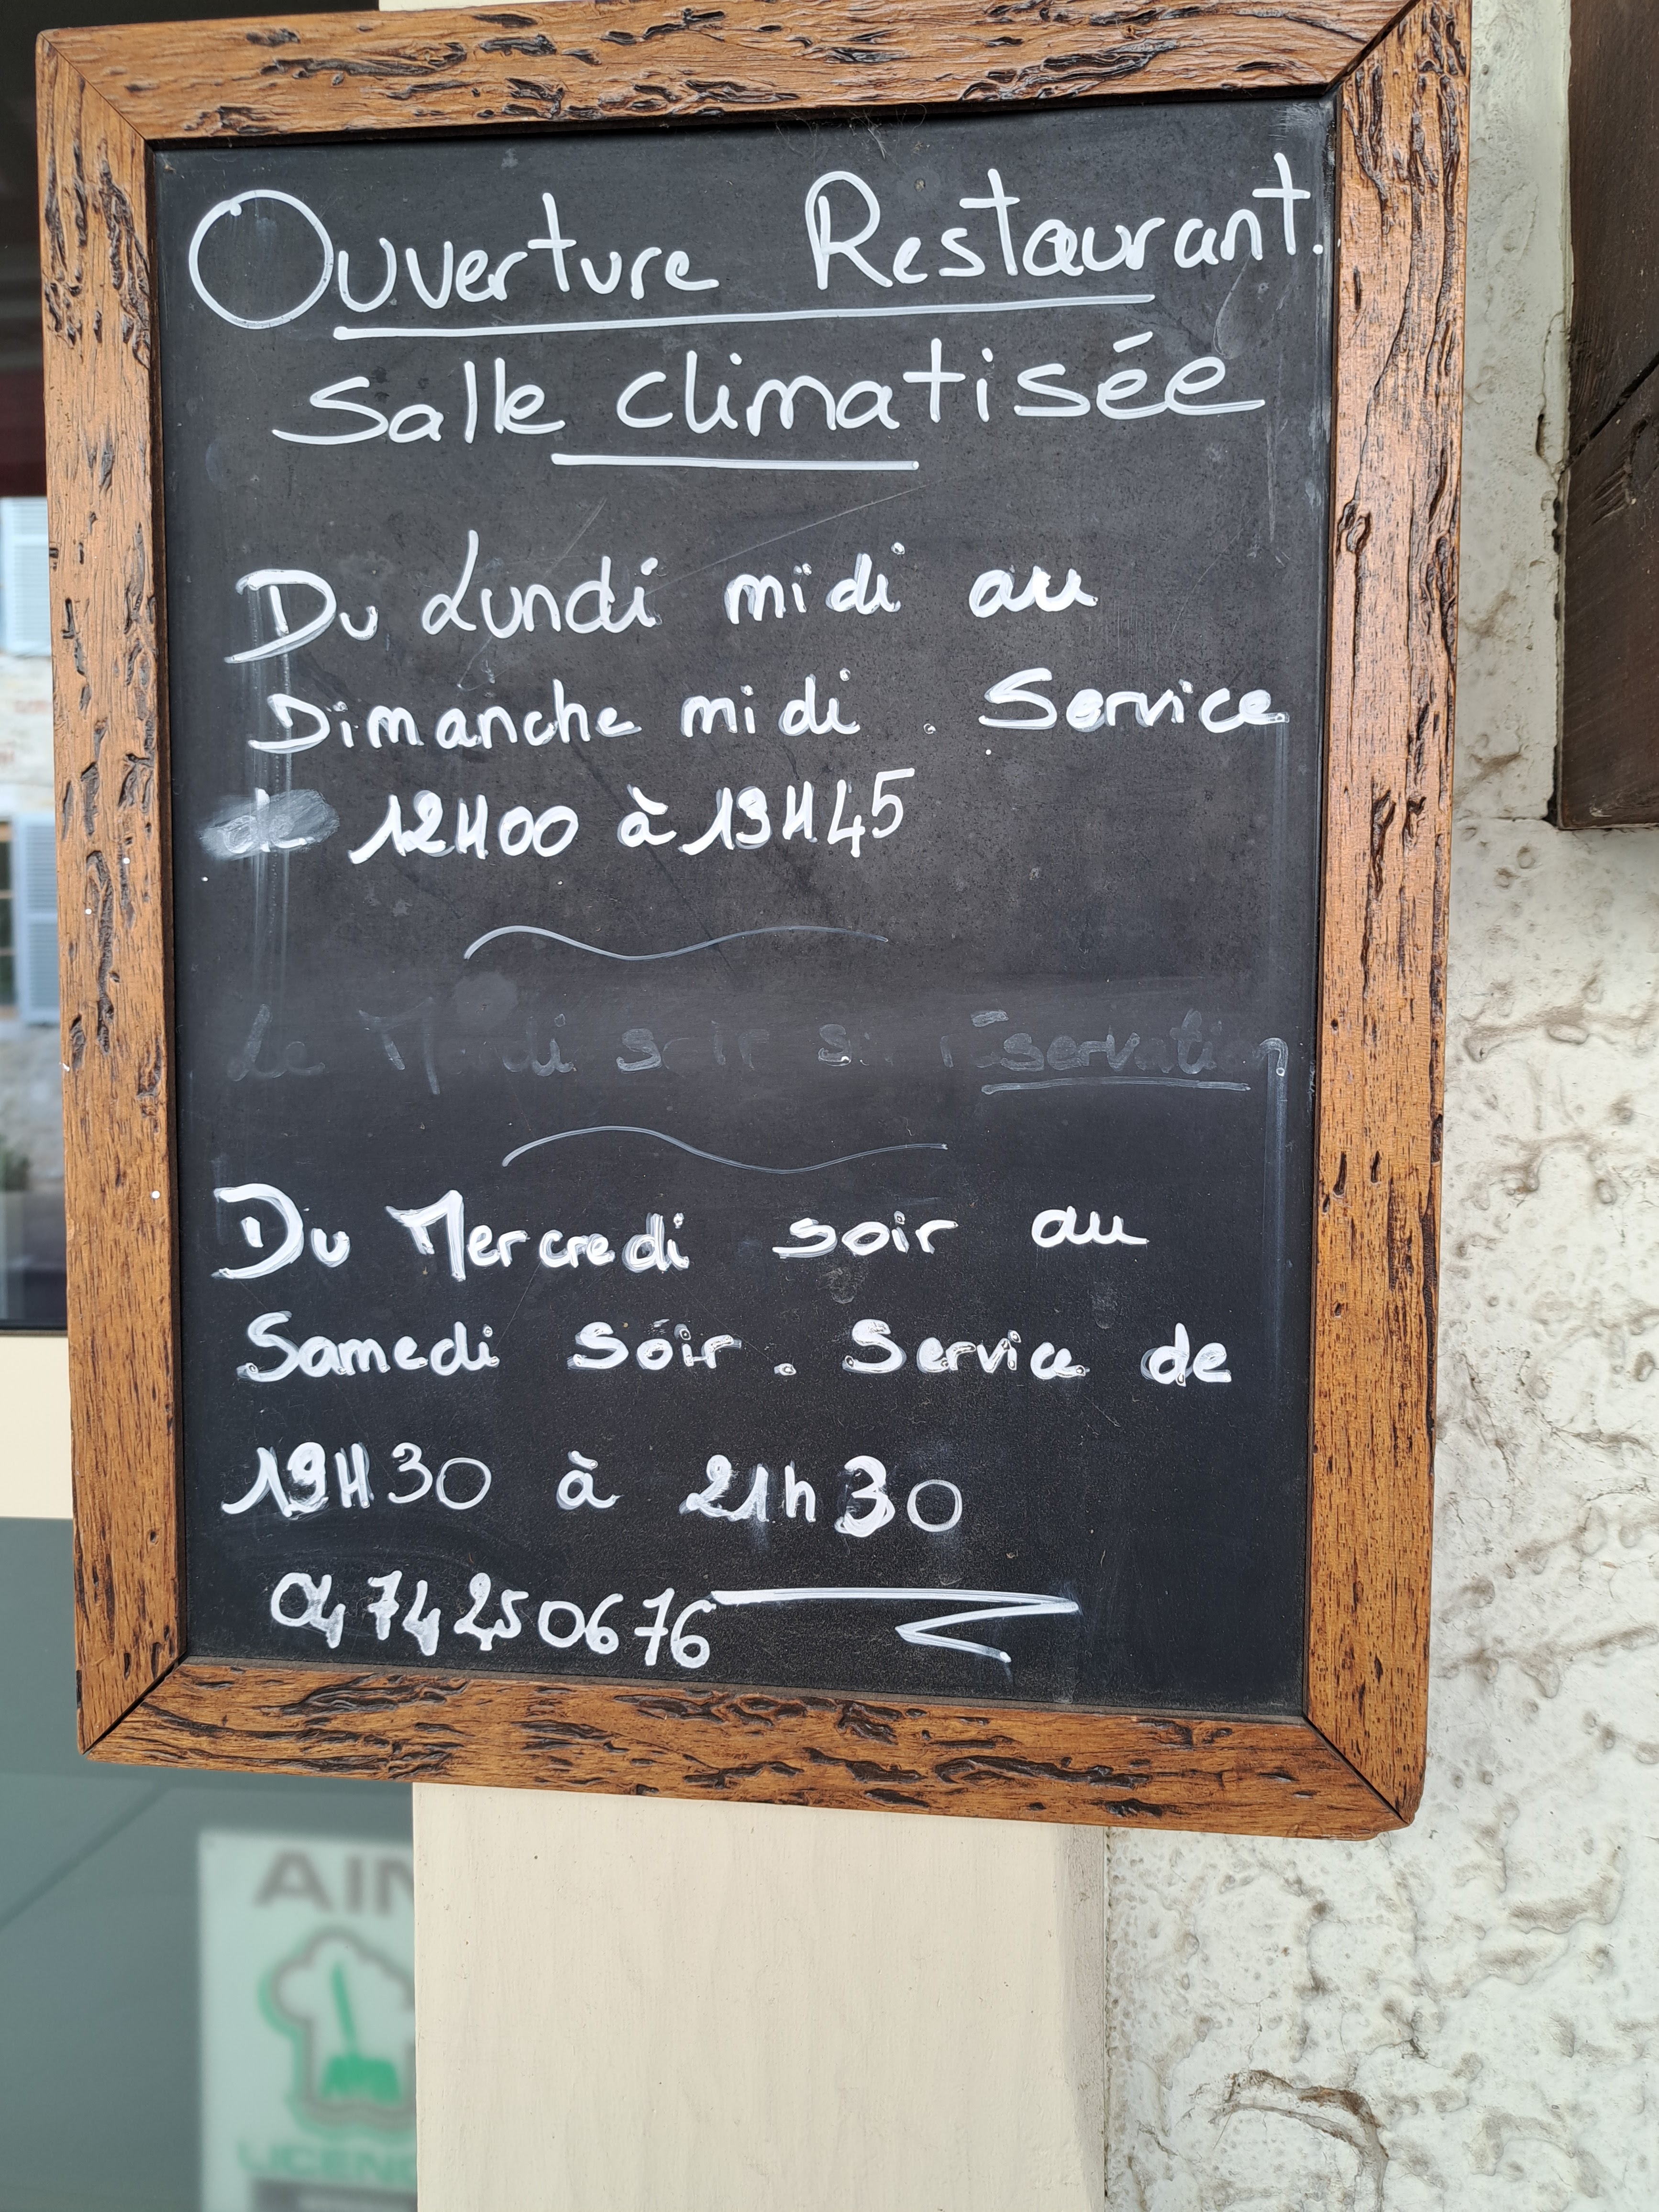 Ouverture Restaurant.
Salle climatisée
Du Lundi midi au
Dimanche midi . Service
de 12H00 à 13H45
Le Mardi soir sur réservation
Du Mercredi soir au
Samedi soir . Service de
19H30 à 21h30
0474250676
AIN
LICENC